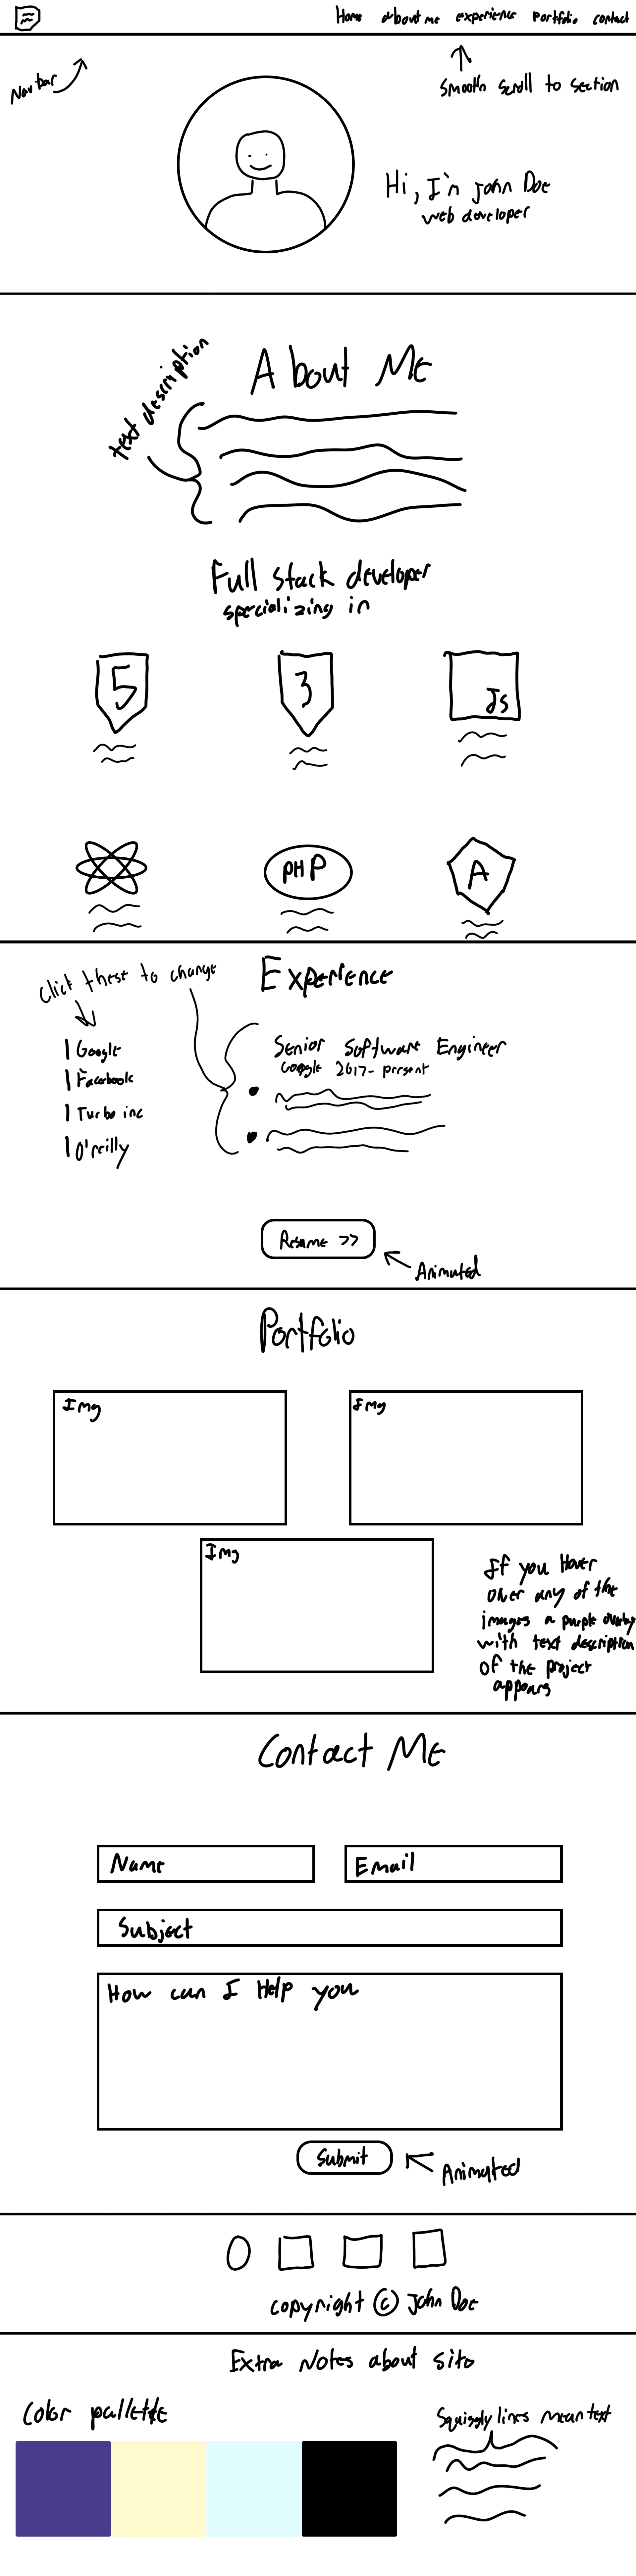 Home about me experience Portfolio contact
Nav bar
Smooth scroll to section
Hi, I'm John Doe
web developer
About Me
text description
Full stack developer
specializing in
5
3
Js
PHP
A
Click these to change
Experience
Google
Facebook
Turbo inc
O'reilly
Senior Software Engineer
Google 2017- present
Resume >>
Animated
Portfolio
Img
Img
Img
If you Hover
over any of the
images a purple overlay
with text description
of the project
appears
Contact Me
Name
Email
Subject
How can I Help you
Submit
Animated
copyright © John Doe
Extra Notes about site
Color pallette
Squiggly lines mean text